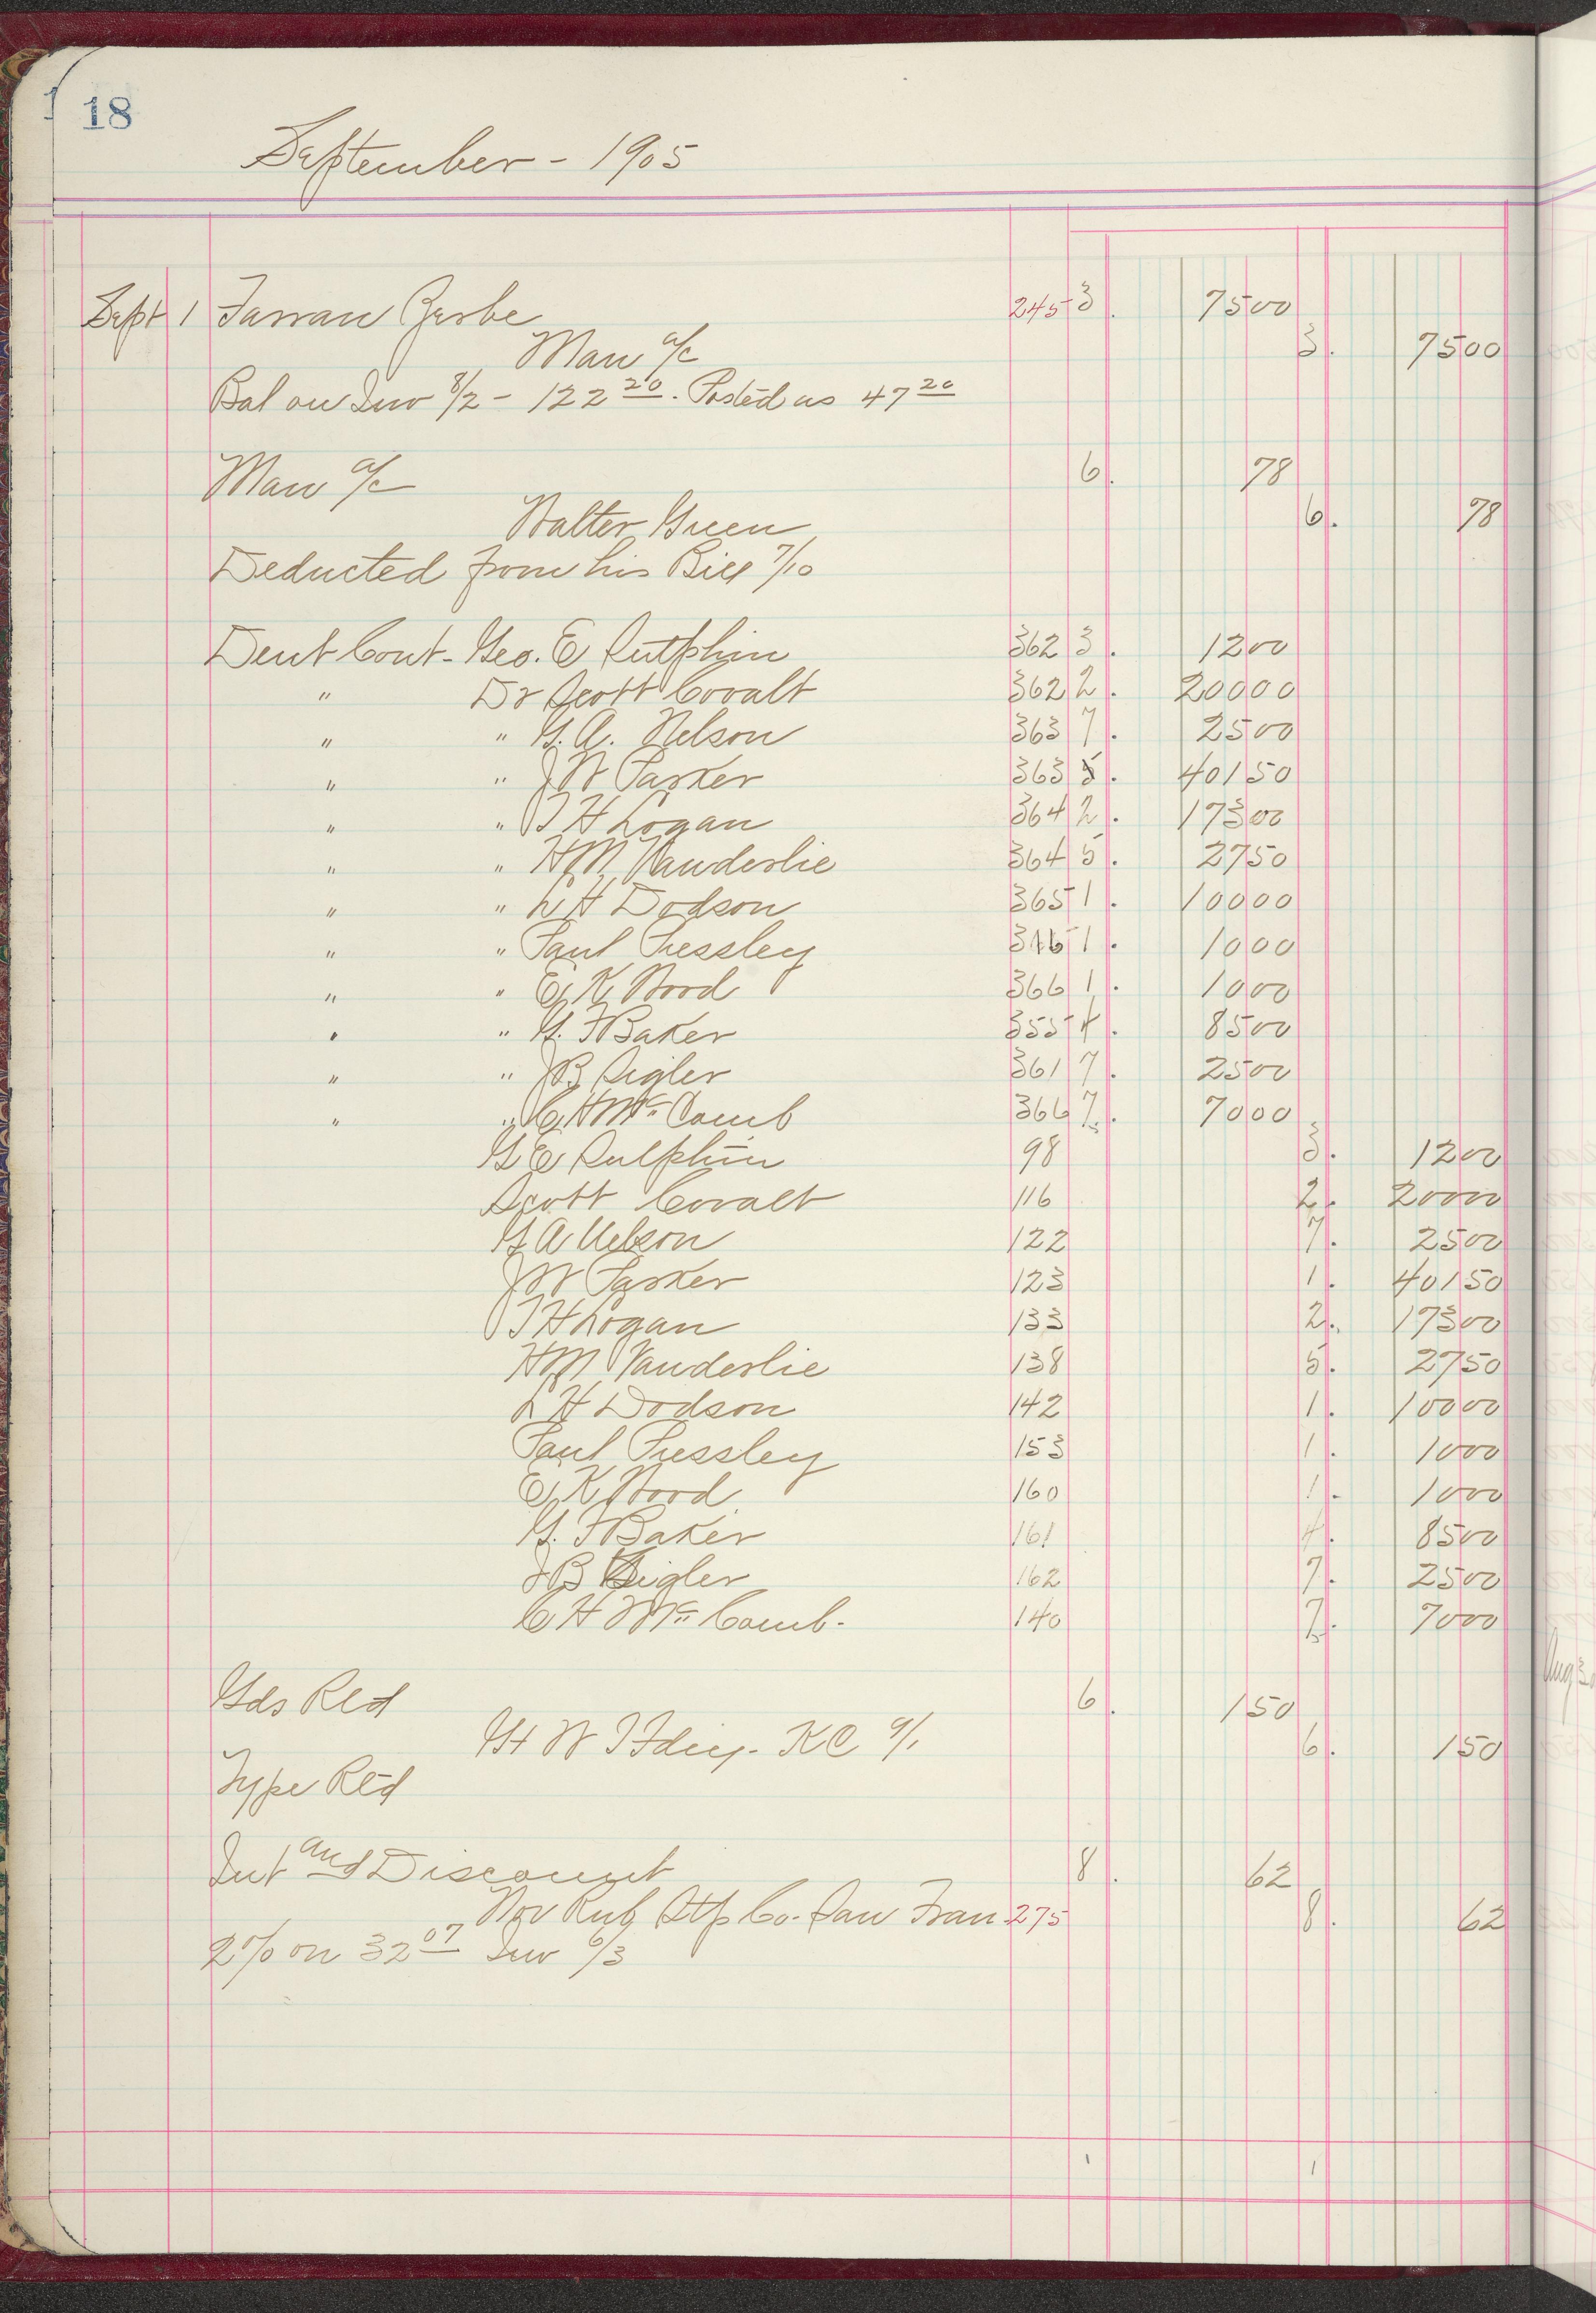 18
September - 1905
Sept 1 Farran Zerbe 245 3. 7500
Man a/c 3. 7500
Bal on Inv 8/2 - 122 20. Posted as 47 20
Man a/c 6. 78
Walter Green 6. 78
Deducted from his Bill 7/10
Dent Cont - Geo. E Sutphin 362 3. 1200
" Dr Scott Covalt 362 2. 20000
" " G. A. Nelson 363 7. 2500
" " J W Parker 363 . 40150
" " J H Logan 364 2. 17300
" " HM Vanderslie 364 5. 2750
" " L H Dodson 365 1. 10000
" " Paul Pressley 1. 1000
" " E. K. Wood 366 1. 1000
" " G. F Baker 355 4. 8500
" " J B Sigler 361 7. 2500
" " C H Mc Comb 366 7. 7000
G E Sutphin 98 3. 1200
Scott Covalt 116 2. 20000
G A Nelson 122 7. 2500
J W Parker 123 1. 40150
J H Logan 133 2. 17300
HM Vanderslie 138 5. 2750
L H Dodson 142 1. 10000
Paul Pressley 153 1. 1000
E. K Wood 160 1. 1000
G. F Baker 161 4. 8500
J B Sigler 162 7. 2500
C H Mc Comb. 140 7. 7000
Gds Rtd 6. 150
KC 9/1 6. 150
Type Rtd
Int and Discount 8. 62
Nov Rub Stp Co. San Fran 275 8. 62
2% on 32 07 Inv 6/3